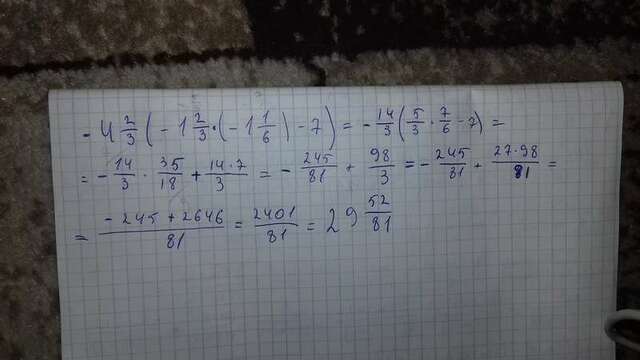 - 4 2/3 ( - 1 2/3 · ( - 1 1/6 ) - 7 ) = - 14/3 ( 5/3 · 7/6 - 7 ) =
= - 14/3 · 35/18 + 14·7/3 = - 245/81 + 98/3 = - 245/81 + 27·98/81 =
= - 245 + 2646/81 = 2401/81 = 29 52/81